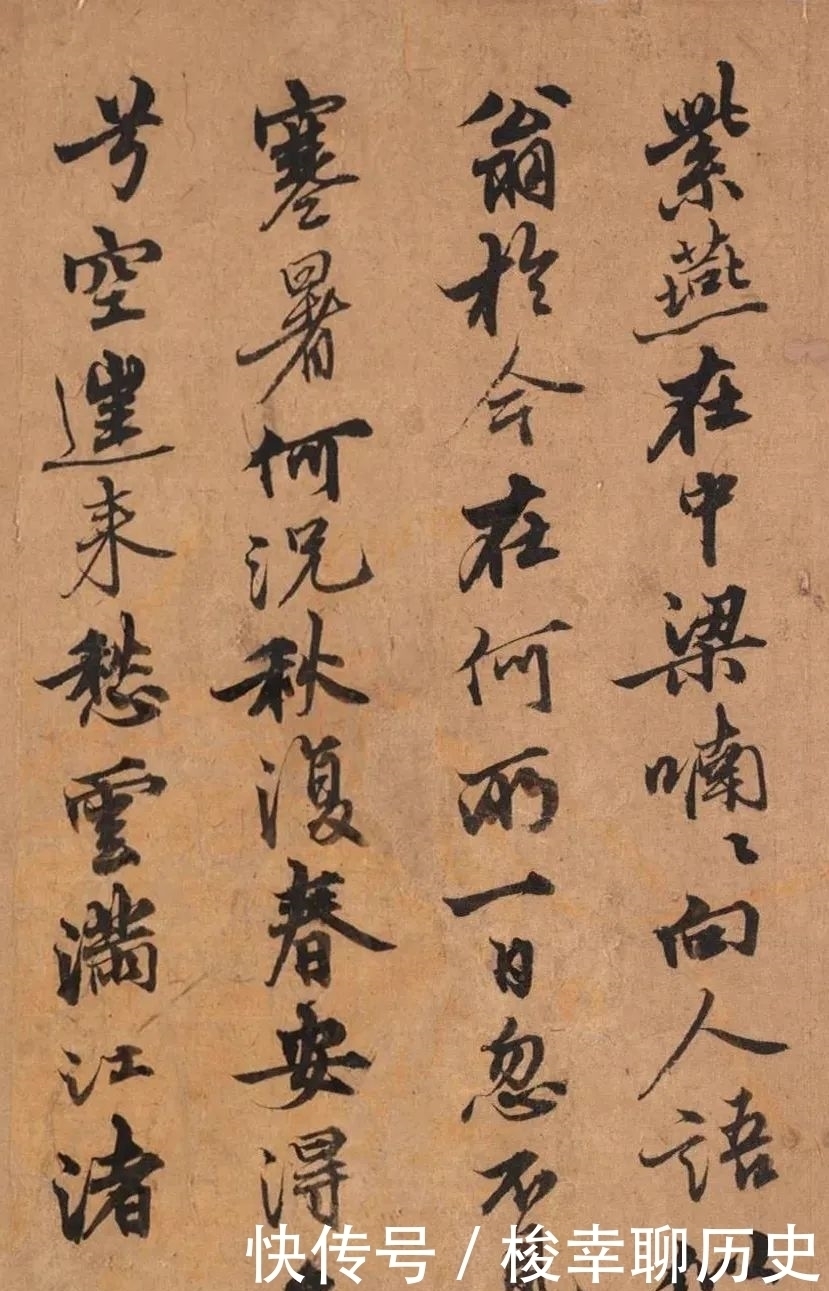 紫燕在中梁喃〻向人語
翁於今在何所一日忽不
寒暑何況秋復春安得
空来愁雲滿江渚
快传号 / 梭幸聊历史